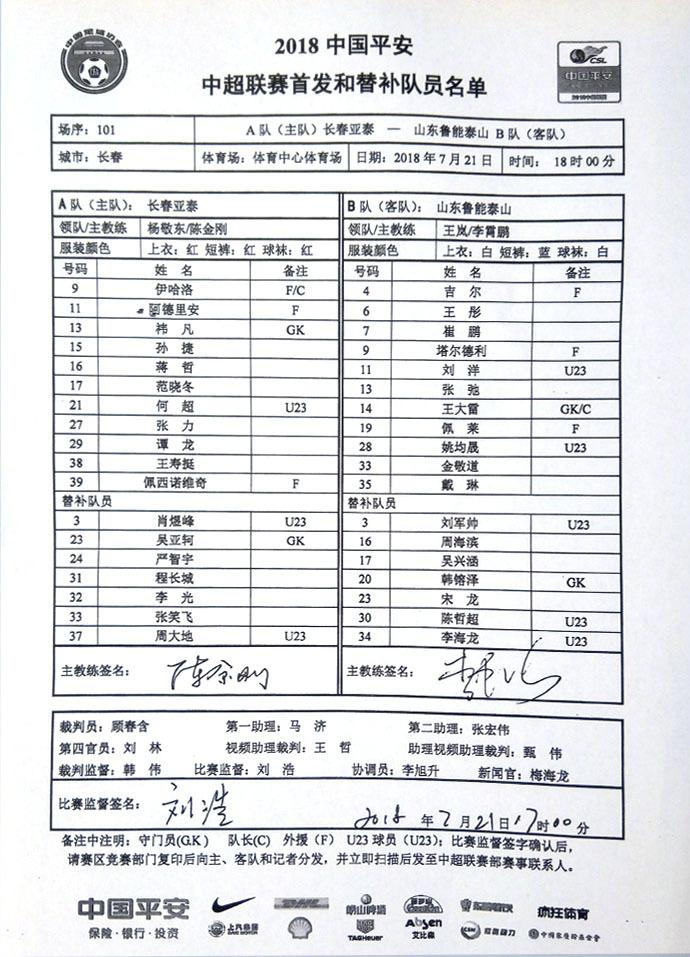 中国足球协会
2018 中国平安
中超联赛首发和替补队员名单
CSL
中国平安
场序：101 A 队（主队）长春亚泰 — 山东鲁能泰山 B 队（客队）
城市：长春 体育场：体育中心体育场 日期：2018 年 7 月 21 日 时间： 18 时 00 分
A 队（主队）： 长春亚泰 B 队（客队）： 山东鲁能泰山
领队/主教练 杨敬东/陈金刚 领队/主教练 王岚/李霄鹏
服装颜色 上衣：红 短裤：红 球袜：红 服装颜色 上衣：白 短裤：蓝 球袜：白
号码 姓 名 备注 号码 姓 名 备注
9 伊哈洛 F/C 4 吉 尔 F
11 阿德里安 F 6 王 彤
13 祎 凡 GK 7 崔 鹏
15 孙 捷 9 塔尔德利 F
16 蒋 哲 11 刘 洋 U23
17 范晓冬 13 张 弛
21 何 超 U23 14 王大雷 GK/C
27 张 力 19 佩 莱 F
29 谭 龙 28 姚均晟 U23
38 王寿挺 33 金敬道
39 佩西诺维奇 F 35 戴 琳
替补队员 替补队员
3 肖煜峰 U23 3 刘军帅 U23
23 吴亚轲 GK 16 周海滨
24 严智宇 17 吴兴涵
31 程长城 20 韩镕泽 GK
32 李 光 23 宋 龙
33 张笑飞 30 陈哲超 U23
37 周大地 U23 34 李海龙 U23
主教练签名： 陈金刚 主教练签名：
裁判员：顾春含 第一助理：马 济 第二助理：张宏伟
第四官员：刘 林 视频助理裁判：王 哲 助理视频助理裁判：甄 伟
裁判监督：韩 伟 比赛监督：刘 浩 协调员：李旭升 新闻官：梅海龙
比赛监督签名： 刘浩 2018 年 7 月 21 日 17 时 00 分
备注中注明：守门员(GK) 队长(C) 外援（F） U23 球员（U23）；比赛监督签字确认后，
请赛区竞赛部门复印后向主、客队和记者分发，并立即扫描后发至中超联赛部赛事联系人。
中国平安
保险·银行·投资
上汽集团
崂山啤酒
TAGHeuer
Absen
艾比森
疯狂体育